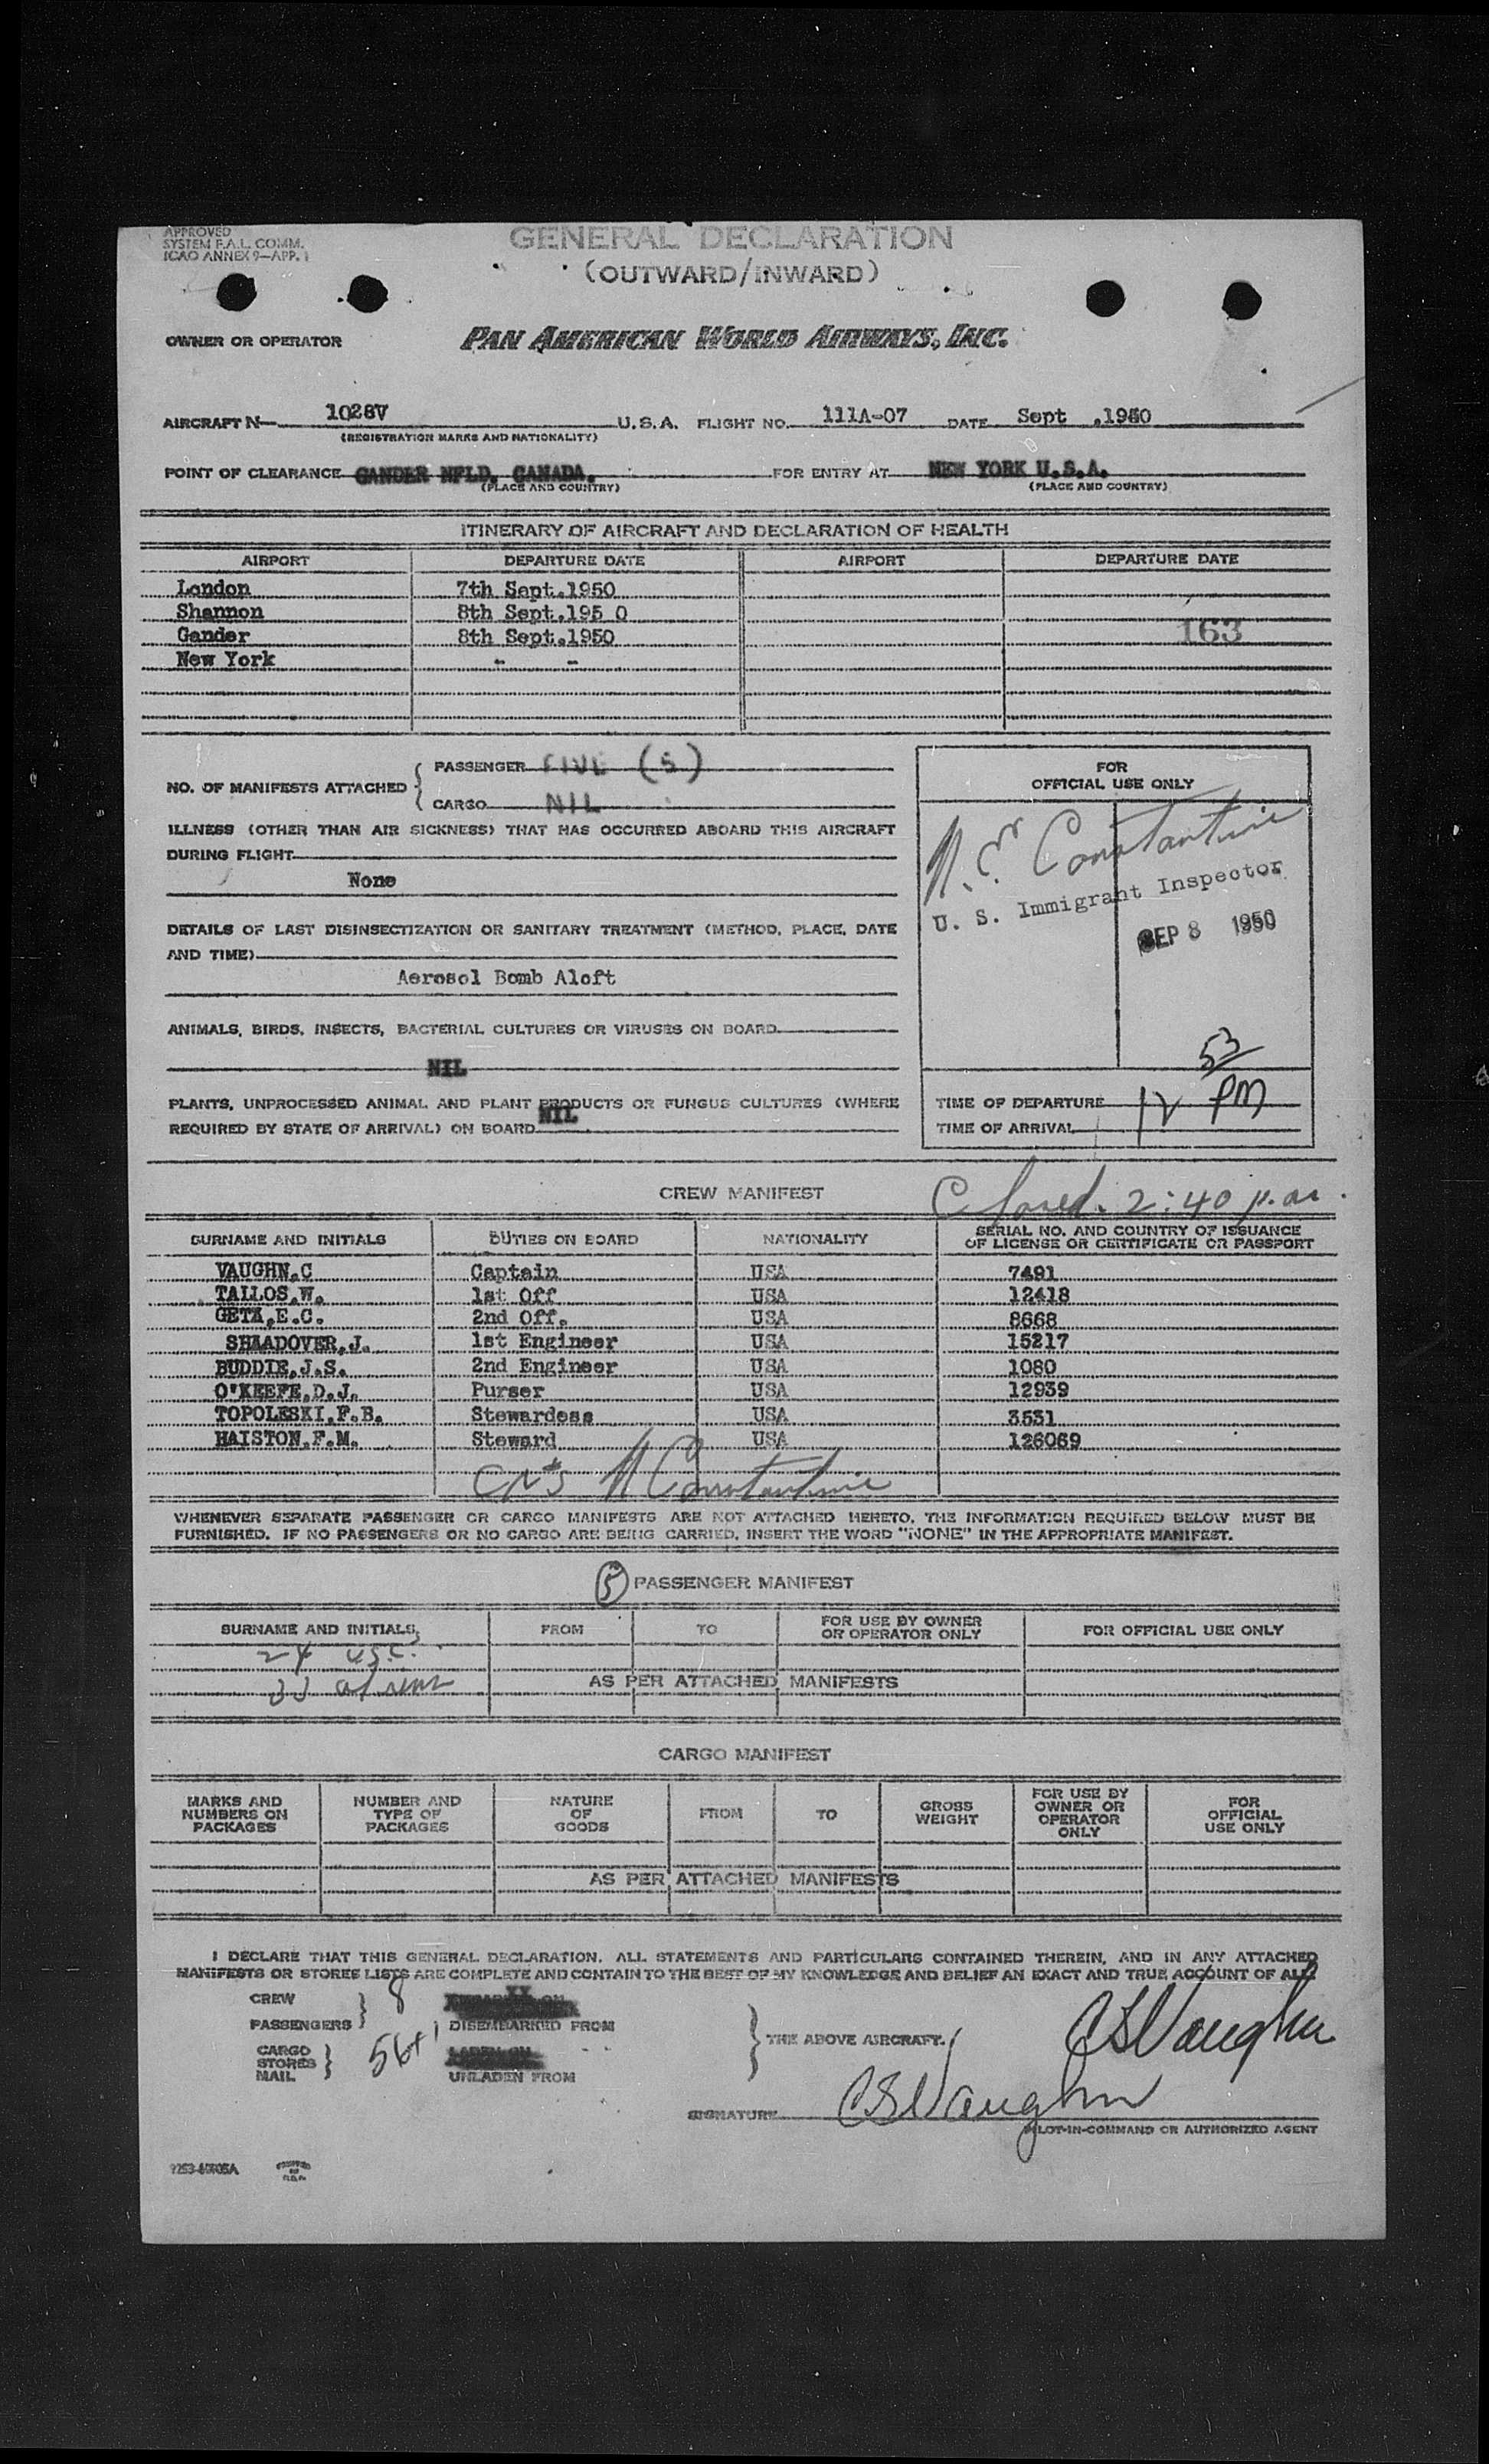 APPROVED
SYSTEM F.A.L. COMM.
ICAO ANNEX 9—APP. 1
GENERAL DECLARATION
(OUTWARD/INWARD)
OWNER OR OPERATOR PAN AMERICAN WORLD AIRWAYS, INC.
AIRCRAFT N— 1028V U.S.A. FLIGHT NO. 111A-07 DATE Sept .1950
(REGISTRATION MARKS AND NATIONALITY)
POINT OF CLEARANCE GANDER NFLD. CANADA. FOR ENTRY AT NEW YORK U.S.A.
(PLACE AND COUNTRY) (PLACE AND COUNTRY)
ITINERARY OF AIRCRAFT AND DECLARATION OF HEALTH
AIRPORT DEPARTURE DATE AIRPORT DEPARTURE DATE
London 7th Sept.1950
Shannon 8th Sept.195 0
Gander 8th Sept.1950 163
New York - -
NO. OF MANIFESTS ATTACHED { PASSENGER FIVE (5)
CARGO NIL
ILLNESS (OTHER THAN AIR SICKNESS) THAT HAS OCCURRED ABOARD THIS AIRCRAFT
DURING FLIGHT
None
DETAILS OF LAST DISINSECTIZATION OR SANITARY TREATMENT (METHOD, PLACE, DATE
AND TIME)
Aerosol Bomb Aloft
ANIMALS, BIRDS, INSECTS, BACTERIAL CULTURES OR VIRUSES ON BOARD
NIL
PLANTS, UNPROCESSED ANIMAL AND PLANT PRODUCTS OR FUNGUS CULTURES (WHERE
REQUIRED BY STATE OF ARRIVAL) ON BOARD NIL
FOR
OFFICIAL USE ONLY
Constantine
U. S. Immigrant Inspector
SEP 8 1950
53
TIME OF DEPARTURE 12 PM
TIME OF ARRIVAL
CREW MANIFEST Closed. 2:40 p.m.
SURNAME AND INITIALS DUTIES ON BOARD NATIONALITY SERIAL NO. AND COUNTRY OF ISSUANCE
OF LICENSE OR CERTIFICATE OR PASSPORT
VAUGHN.C Captain USA 7491
TALLOS.W. 1st Off USA 12418
GETA.E.C. 2nd Off. USA 8668
SHAADOVER.J. 1st Engineer USA 15217
BUDDIE.J.S. 2nd Engineer USA 1080
O'KEEFE.D.J. Purser USA 12939
TOPOLESKI.F.B. Stewardess USA 3531
HAISTON.F.M. Steward USA 126069
Constantine
WHENEVER SEPARATE PASSENGER OR CARGO MANIFESTS ARE NOT ATTACHED HERETO, THE INFORMATION REQUIRED BELOW MUST BE
FURNISHED. IF NO PASSENGERS OR NO CARGO ARE BEING CARRIED, INSERT THE WORD "NONE" IN THE APPROPRIATE MANIFEST.
5 PASSENGER MANIFEST
SURNAME AND INITIALS FROM TO FOR USE BY OWNER
OR OPERATOR ONLY FOR OFFICIAL USE ONLY
24 USC.
33 aliens
AS PER ATTACHED MANIFESTS
CARGO MANIFEST
MARKS AND
NUMBERS ON
PACKAGES
NUMBER AND
TYPE OF
PACKAGES
NATURE
OF
GOODS
FROM
TO
GROSS
WEIGHT
FOR USE BY
OWNER OR
OPERATOR
ONLY
FOR
OFFICIAL
USE ONLY
AS PER ATTACHED MANIFESTS
I DECLARE THAT THIS GENERAL DECLARATION, ALL STATEMENTS AND PARTICULARS CONTAINED THEREIN, AND IN ANY ATTACHED
MANIFESTS OR STORES LISTS ARE COMPLETE AND CONTAIN TO THE BEST OF MY KNOWLEDGE AND BELIEF AN EXACT AND TRUE ACCOUNT OF ALL
CREW 8
PASSENGERS 56+1 DISEMBARKED FROM
THE ABOVE AIRCRAFT. CSVaughn
CARGO
STORES
MAIL
LADEN ON
UNLADEN FROM
SIGNATURE CSVaughn
PILOT-IN-COMMAND OR AUTHORIZED AGENT